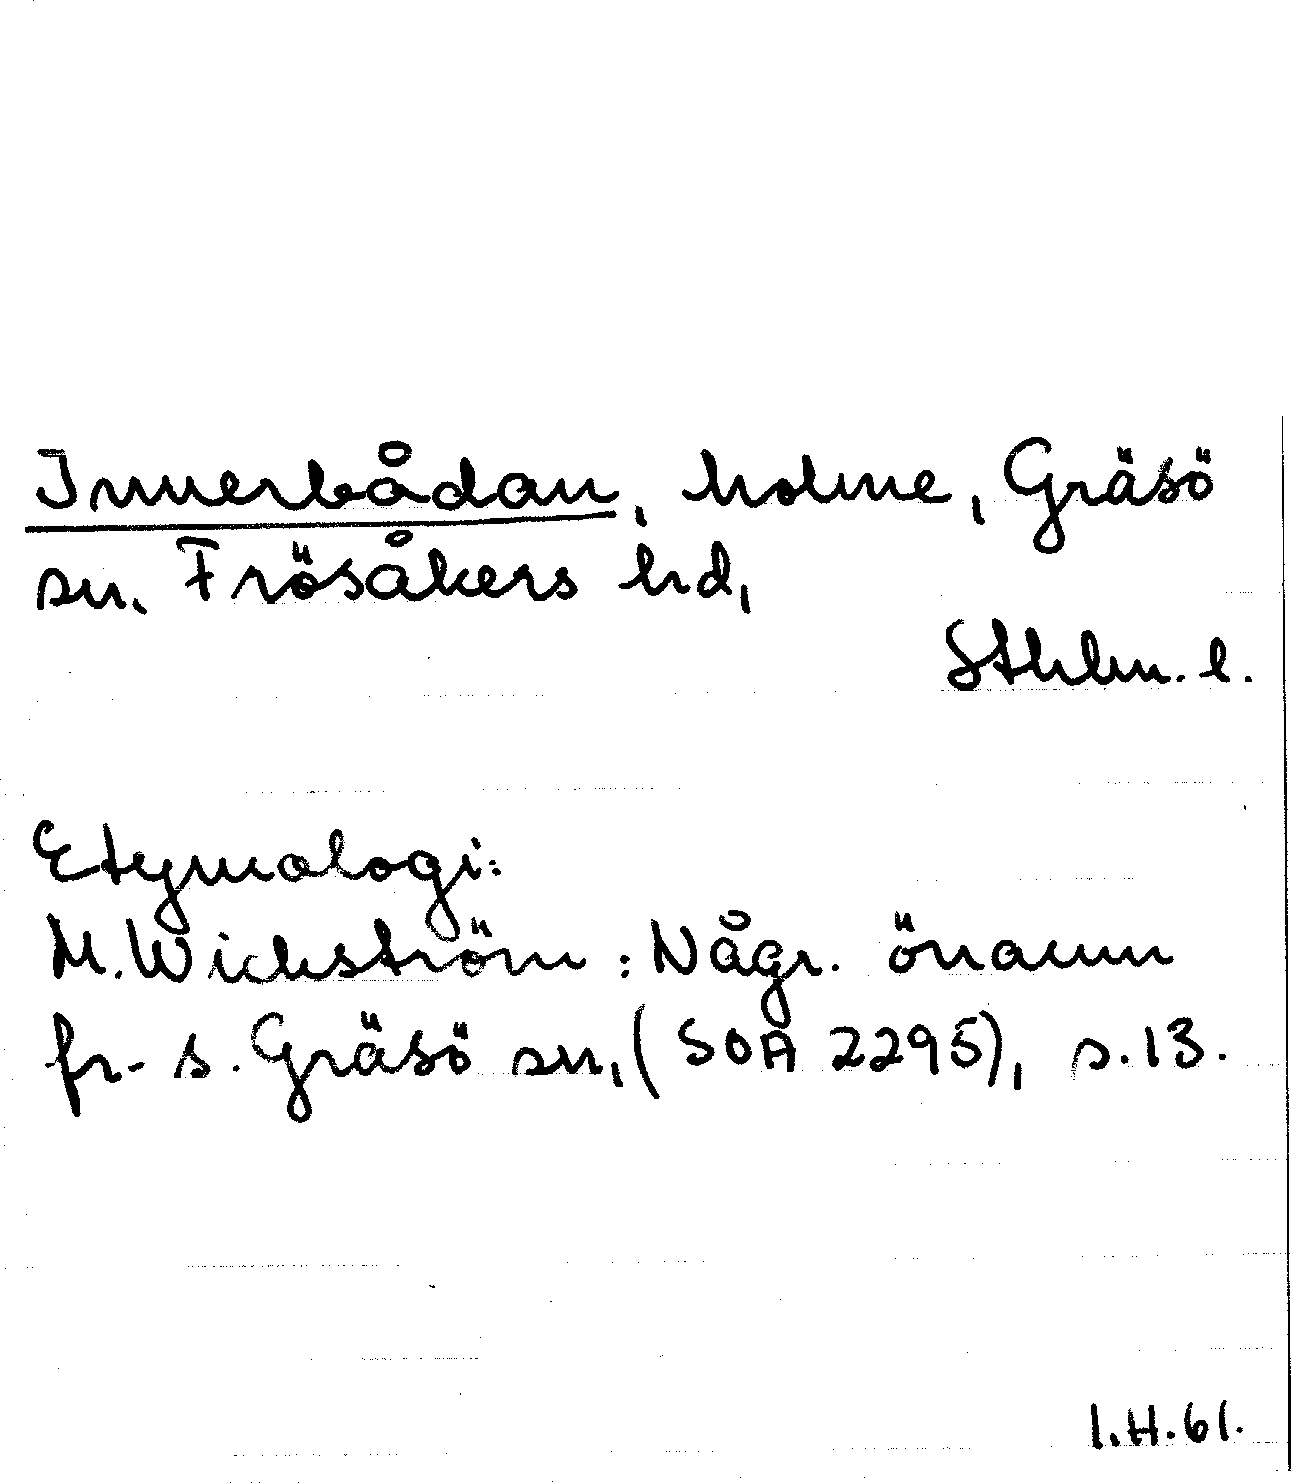 Innerbådan, holme, Gräsö
sn. Frösåkers hd,
Sthlm. l.
Etymologi:
M. Wickström: Någr. önamn
fr. s. Gräsö sn, (SOA 2295), s. 13.
I.H.61.